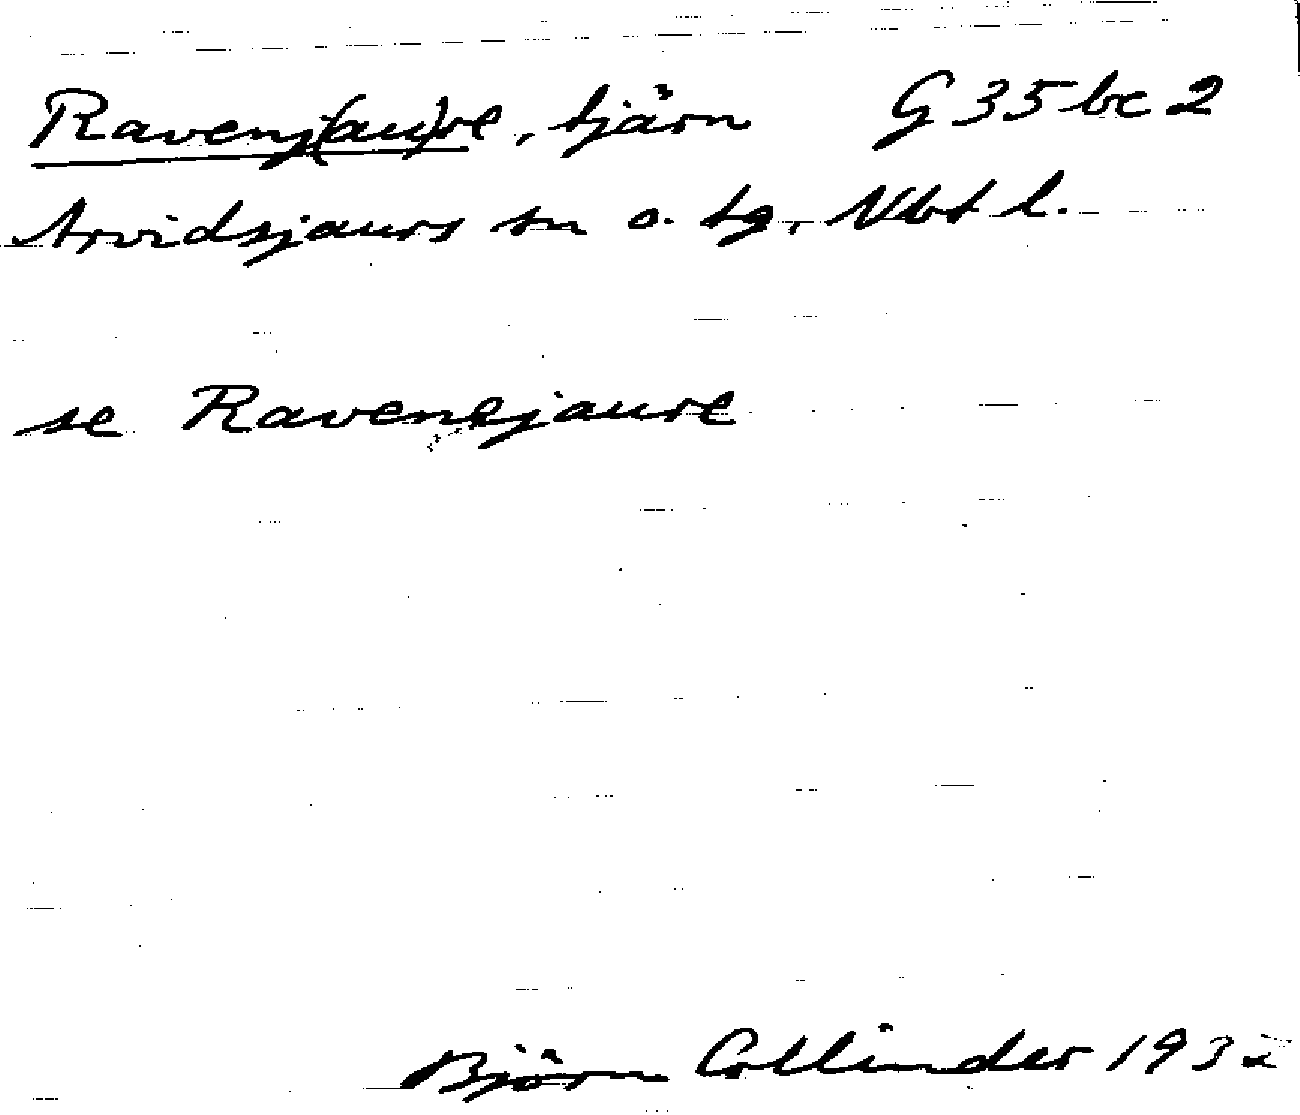 Ravenj(au)re, tjärn G 35 bc 2
Arvidsjaurs sn o. tg, Vbt l.
se Ravenejaure
Björn Collinder 1932